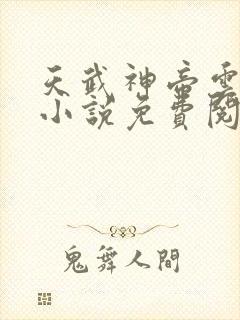 天武神帝雲
小說免費閱
鬼舞人間